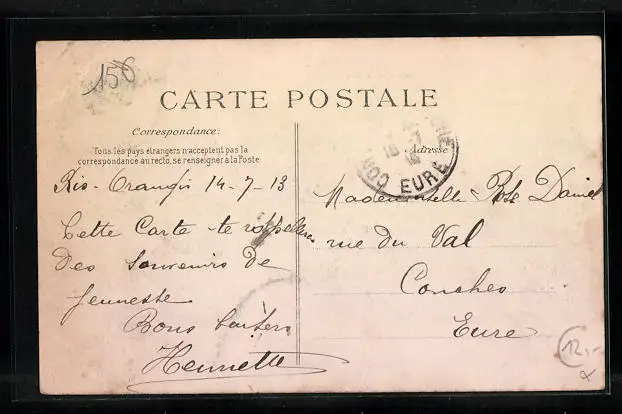 156
CARTE POSTALE
Correspondance:
Tous les pays étrangers n'acceptent pas la
correspondance au recto, se renseigner à la Poste
Adresse
CONCHES EURE
Ris-Orangis 14-7-13
Cette Carte te rappellera
des souvenirs de
jeunesse
Bons baisers
Henriette
Mademoiselle Rose Daniel
rue du Val
Conches
Eure
12,-
x